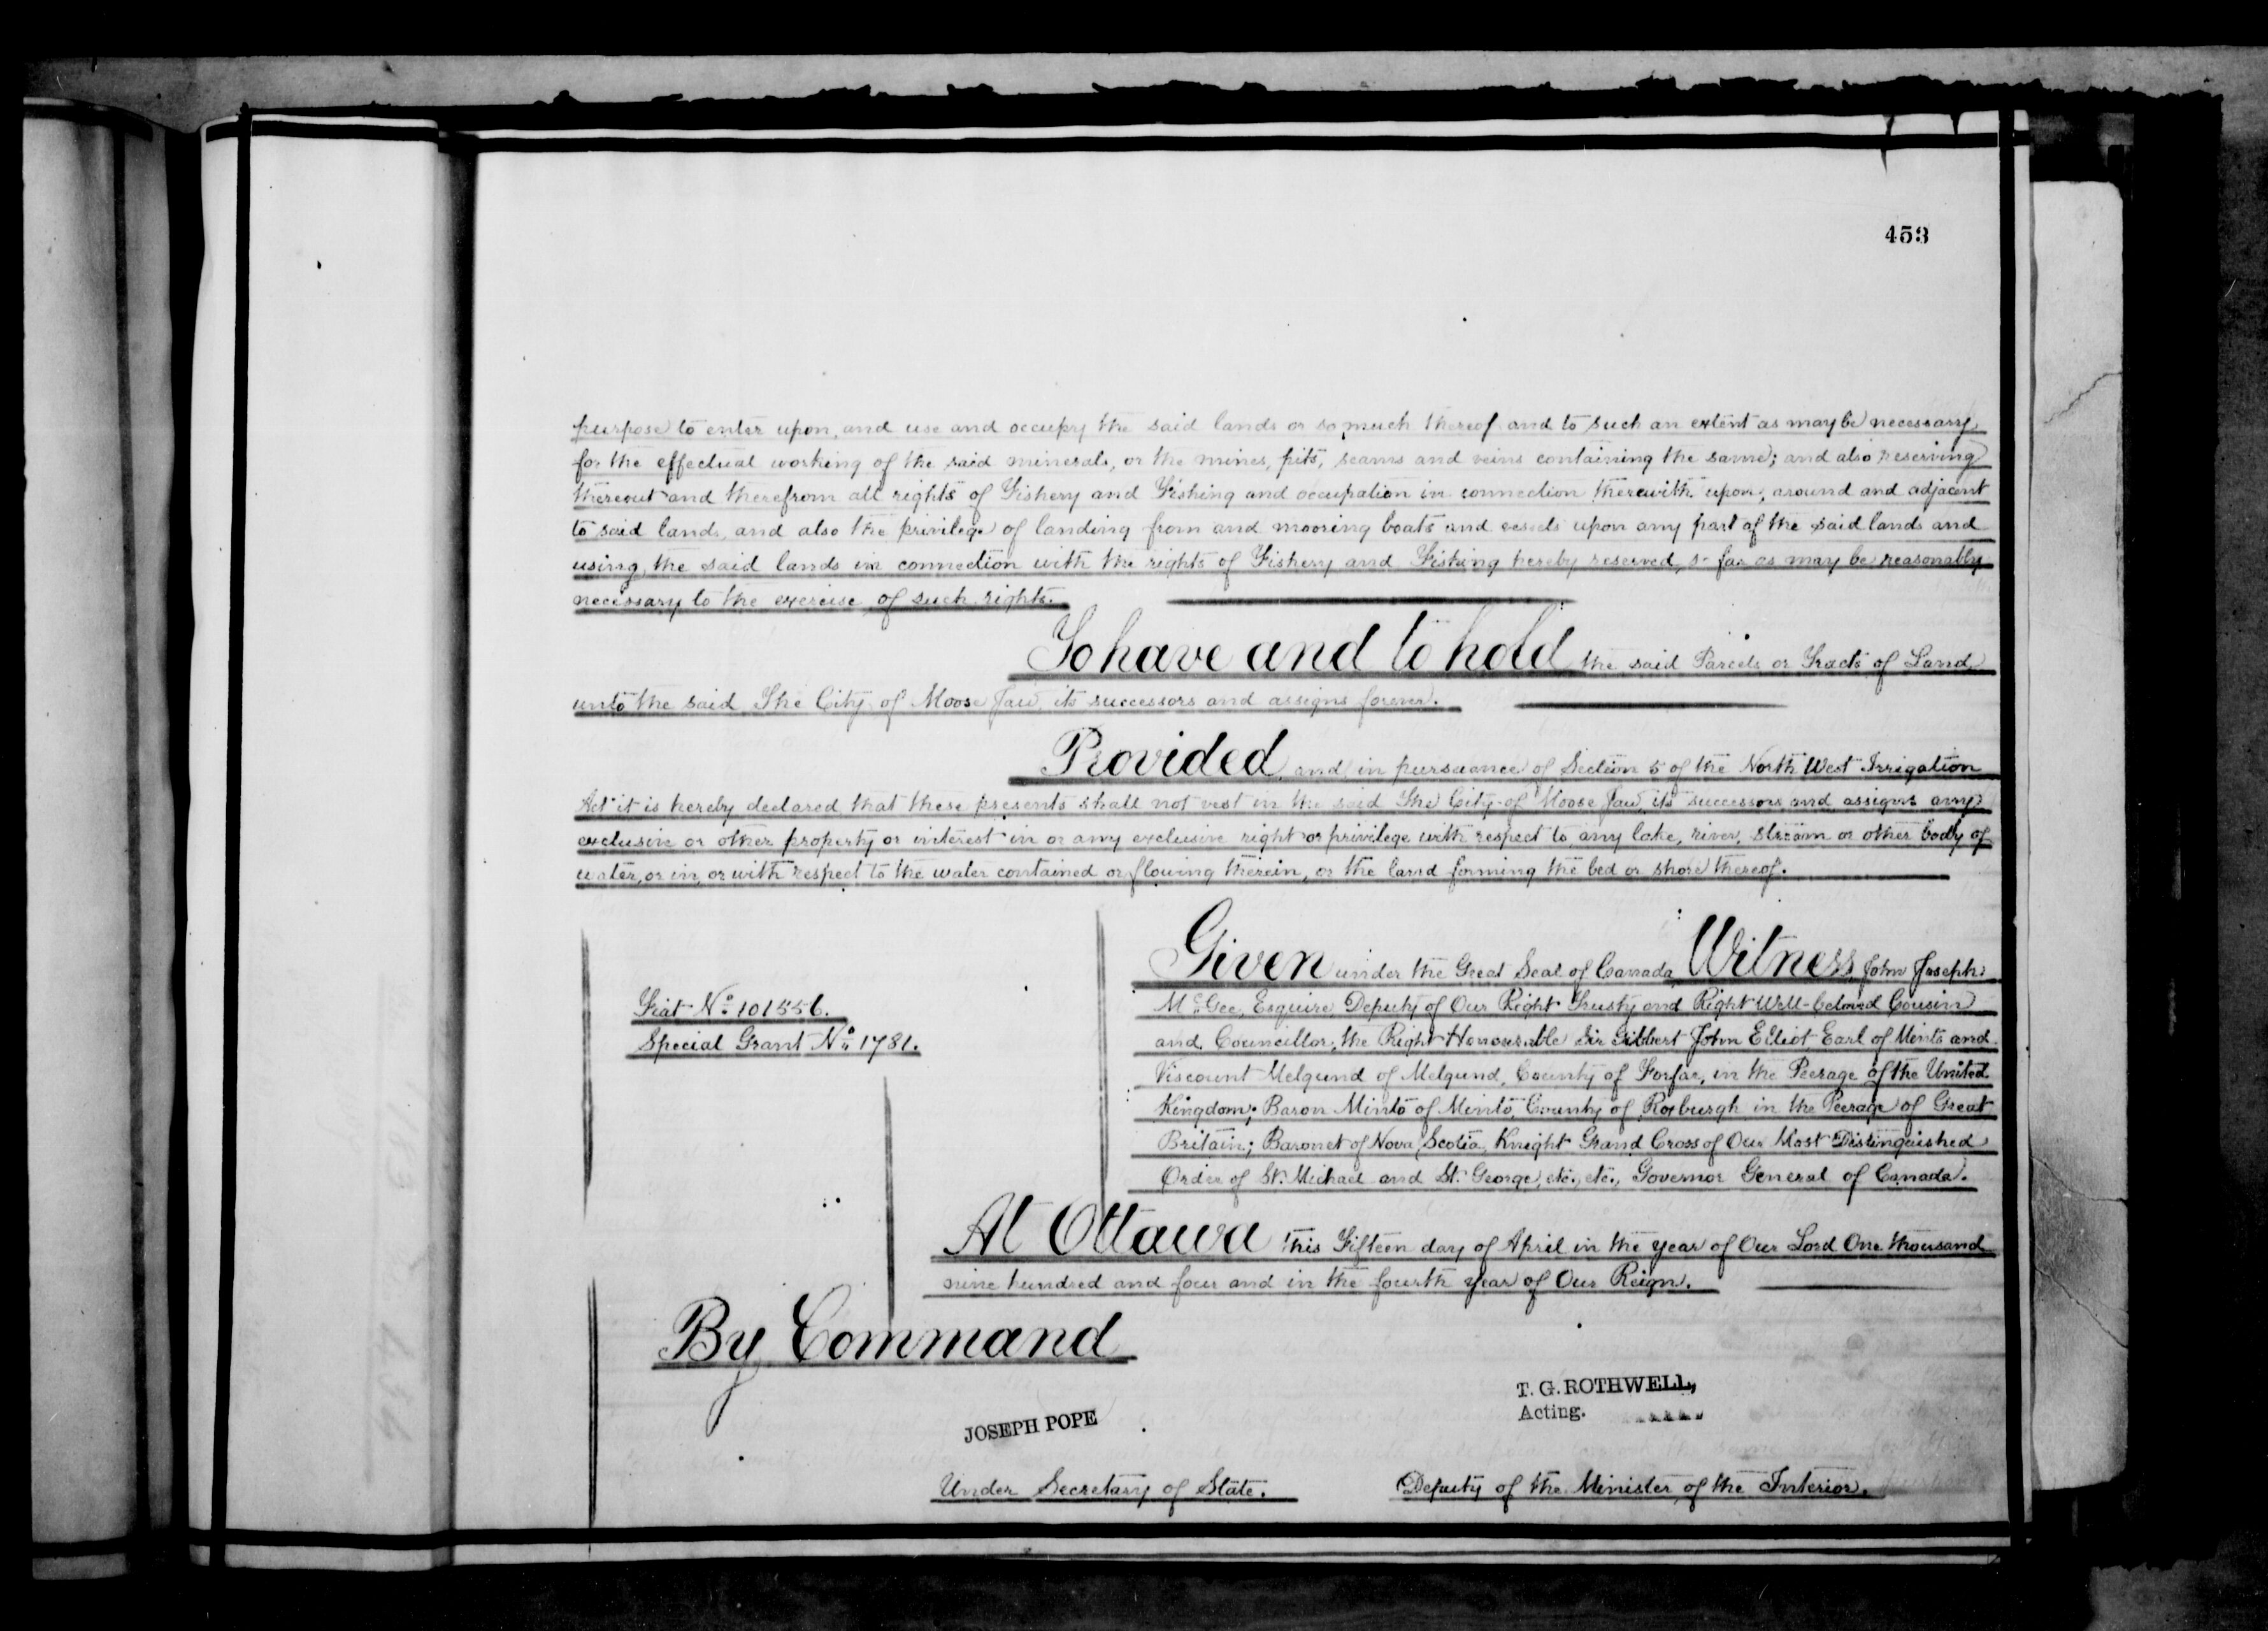 453
purpose to enter upon, and use and occupy the said lands or so much thereof and to such an extent as may be necessary
for the effectual working of the said minerals, or the mines, pits, seams and veins containing the same; and also reserving
thereout and therefrom all rights of Fishery and Fishing and occupation in connection therewith upon, around and adjacent
to said lands, and also the privilege of landing from and mooring boats and vessels upon any part of the said lands and
using the said lands in connection with the rights of Fishery and Fishing hereby reserved, so far as may be reasonably
necessary to the exercise of such rights.
To have and to hold the said Parcels or Tracts of Land,
unto the said The City of Moose Jaw, its successors and assigns forever.
Provided, and in pursuance of Section 5 of the North West Irrigation
Act it is hereby declared that these presents shall not vest in the said The City of Moose Jaw, its successors and assigns any
exclusive or other property or interest in or any exclusive right or privilege with respect to any lake, river, stream or other body of
water, or in, or with respect to the water contained or flowing therein, or the land forming the bed or shore thereof.
Given under the Great Seal of Canada Witness John Joseph
McGee, Esquire Deputy of Our Right Trusty and Right Well-beloved Cousin
and Councillor, the Right Honourable Sir Gilbert John Elliot Earl of Minto and
Viscount Melgund of Melgund, County of Forfar, in the Peerage of the United
Kingdom; Baron Minto of Minto, County of Roxburgh in the Peerage of Great
Britain; Baronet of Nova Scotia, Knight Grand Cross of Our Most Distinguished
Order of St. Michael and St. George, etc., etc., Governor General of Canada.
Fiat No. 101556.
Special Grant No. 1781.
At Ottawa this Fifteen day of April in the year of Our Lord One thousand
nine hundred and four and in the fourth year of Our Reign.
By Command
T. G. ROTHWELL,
Acting.
JOSEPH POPE
Under Secretary of State.
Deputy of the Minister of the Interior.